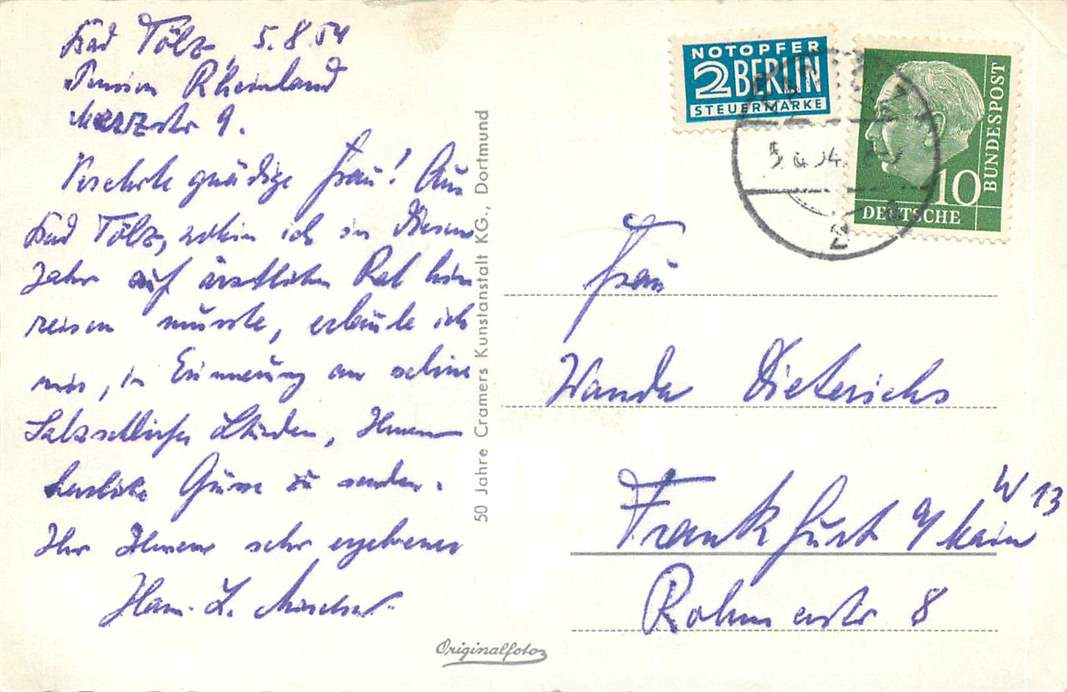 Bad Tölz, 5.8.54
Pension Rheinland
Merzstr 9.
Verehrte gnädige Frau! Aus
Bad Tölz, wohin ich in diesem
Jahr auf ärztlichen Rat hin
reisen musste, erlaube ich
mir, in Erinnerung an schöne
Salzschlirfer Stunden, Ihnen
herzliche Grüsse zu senden.
Ihr Ihnen sehr ergebener
50 Jahre Cramers Kunstanstalt KG., Dortmund
Originalfoto
NOTOPFER
2 BERLIN
STEUERMARKE
BUNDESPOST
10
DEUTSCHE
Frau
Wanda Dieterichs
Frankfurt a/Main W 13
8